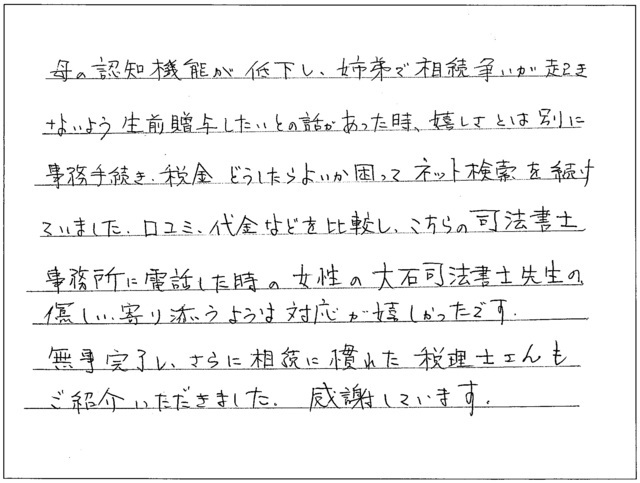 母の認知機能が低下し、姉弟で相続争いが起き
ないよう生前贈与したいとの話があった時、嬉しさとは別に
事務手続き、税金どうしたらよいか困ってネット検索を続け
ていました。口コミ、代金などを比較し、こちらの司法書士
事務所に電話した時の女性の大石司法書士先生の、
優しい寄り添うような対応が嬉しかったです。
無事完了し、さらに相続に慣れた税理士さんも
ご紹介いただきました。感謝しています。